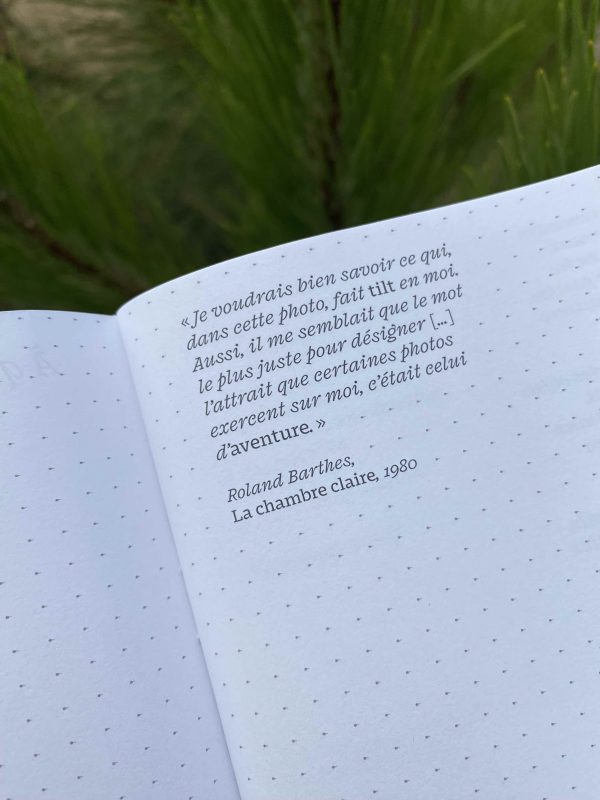 « Je voudrais bien savoir ce qui,
dans cette photo, fait tilt en moi.
Aussi, il me semblait que le mot
le plus juste pour désigner [...]
l'attrait que certaines photos
exercent sur moi, c'était celui
d'aventure. »
Roland Barthes,
La chambre claire, 1980